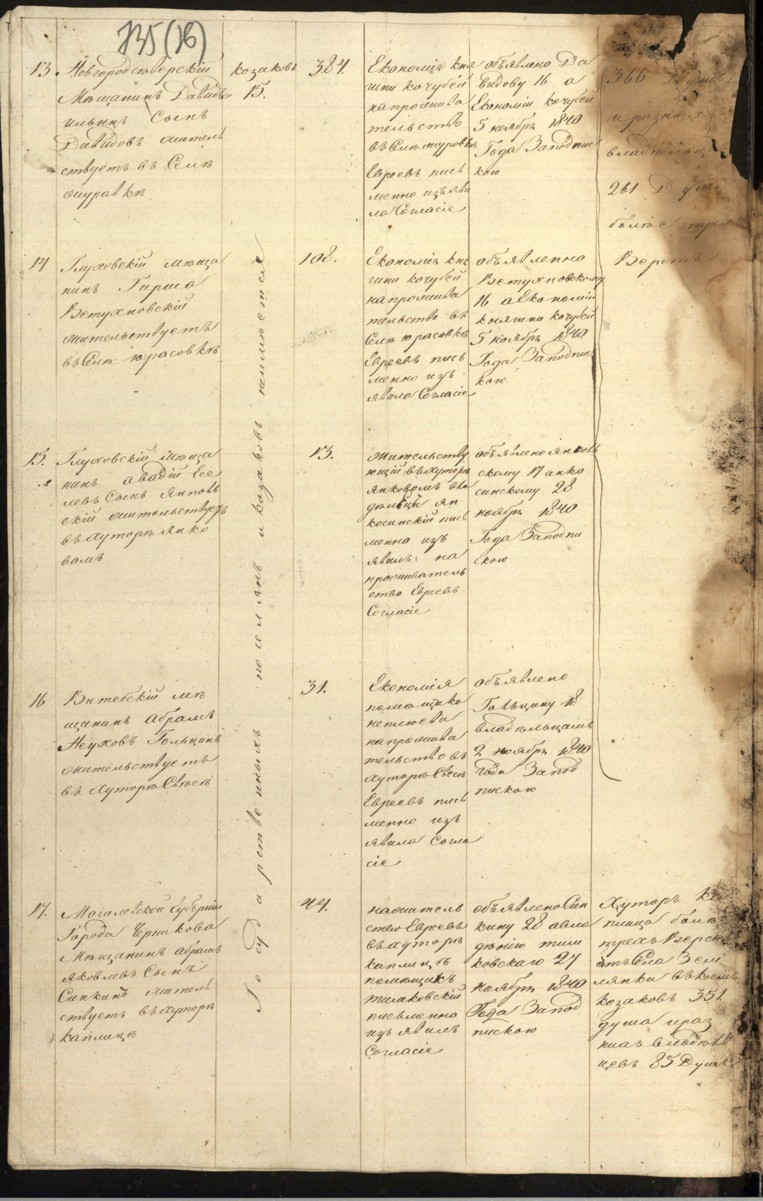 735(16)
13 Новгородсеверскій
Мѣщанинъ Давидъ
Сынъ
Давидовъ жител
ствуетъ въ Селѣ
козаковъ
15.
384.
Економія кня
гини кочубей
на прожива
тельство
Евреевъ пись
менно изъяви
ла Согласіе
объявлено Да
видову 16 а
Економіи кочубей
5 ноября 1840
Года Заподпис
кою
366 Душъ
и разно
владельц
261 Душ
более трех
Верстъ
14 Глуховскій меща
нинъ Гирша
Ветухновскій
жительствуетъ
въ Селѣ юрасовкѣ
108.
Економія кня
гини кочубей
на прожива
тельство въ
Селѣ юрасовкѣ
Евреевъ пись
менно изъ
явила Согласіе
объявленно
Ветухновскому
16 а Економіи
княгини кочубей
5 ноября 1840
Года Заподпис
кою
15. Глуховскій меща
нинъ
левъ Сынъ
скій жительствуетъ
въ хуторѣ янко
вомъ
13.
жительству
ющій въ хуторѣ
янковомъ вла
делецъ ян
косинскій пись
менно изъ
явилъ на
проживатель
ство Евреевъ
Согласіе
скому 17 а янко
синскому 28
ноября 1840
Года Заподпи
скою
Государственныхъ поселянъ и козаковъ неимѣется
16 Витебскій ме
щанинъ абрамъ
Гольцинъ
жительствуетъ
въ хуторѣ Свѣсѣ
31.
Економія
помѣщика
неплюева
на прожива
тельство въ
хуторѣ Свѣсѣ
Евреевъ пись
менно изъ
явила Согла
сіе
объявлено
Гольцину 18
владельцамъ
2 ноября 1840
Года Запод
пискою
17. Могилевской Губерніи
Города Черикова
Мѣщанинъ абрамъ
яковлевъ Сынъ
Синкинъ жител
ствуетъ въ хуторѣ
каплицѣ
44.
нажитель
ство Евреевъ
въ хуторѣ
каплицѣ
помещикъ
тимковскій
письменно
изъявилъ
Согласіе
объявлено Син
кину 28 а вла
дѣнію тим
ковскаго 27
ноября 1840
Года Запод
пискою
Хуторъ ка
плица более
трехъ Верстъ
отъ Села Зем
лянки въ коемъ
козаковъ 351
душа и раз
ныхъ владель
цевъ 85 Душъ